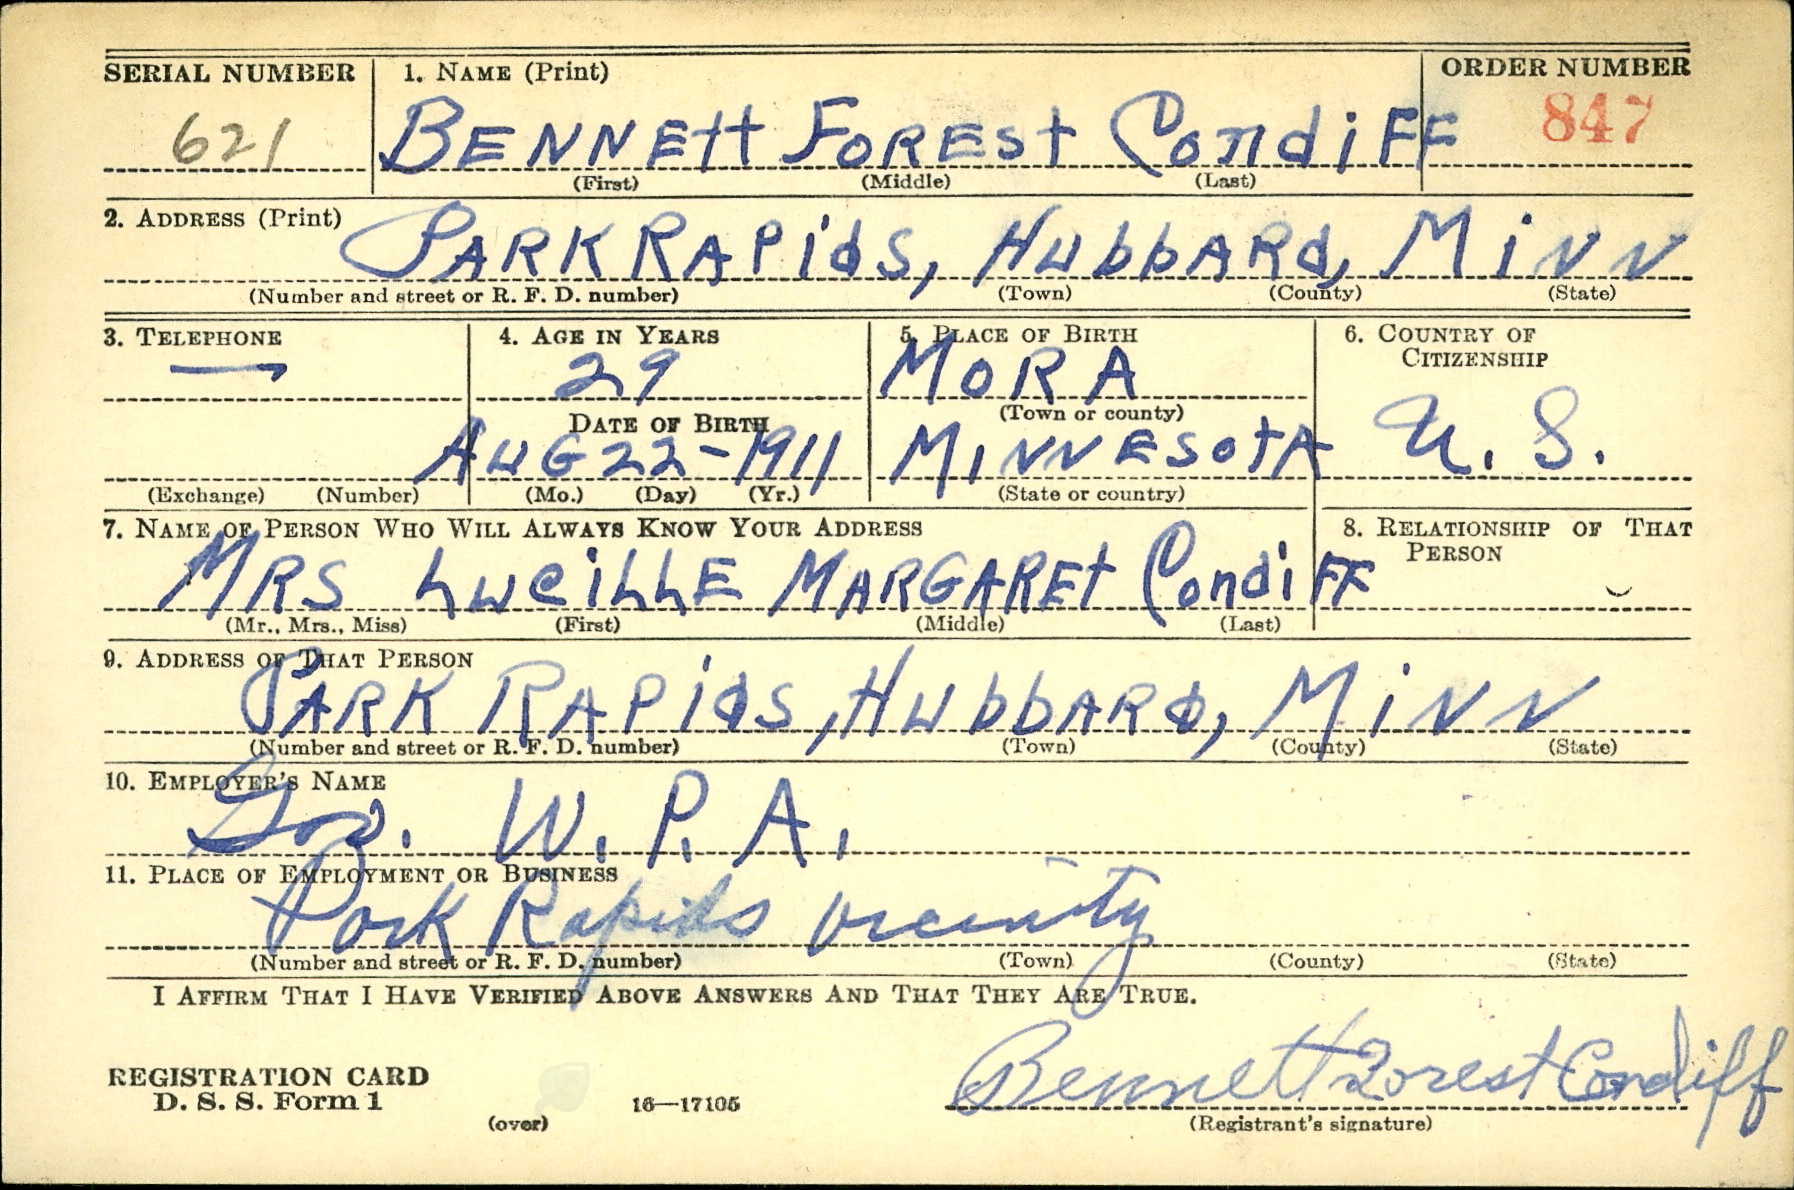 SERIAL NUMBER 1. NAME (Print) ORDER NUMBER
621 BENNEtt FOREST CondiFF 847
(First) (Middle) (Last)
2. ADDRESS (Print)
PARK RAPids, HubbARd, MiNN
(Number and street or R. F. D. number) (Town) (County) (State)
3. TELEPHONE 4. AGE IN YEARS 5. PLACE OF BIRTH 6. COUNTRY OF CITIZENSHIP
— 29 MORA
DATE OF BIRTH (Town or county)
AUG 22-1911 MINNESotA U. S.
(Exchange) (Number) (Mo.) (Day) (Yr.) (State or country)
7. NAME OF PERSON WHO WILL ALWAYS KNOW YOUR ADDRESS 8. RELATIONSHIP OF THAT PERSON
MRS LuciLLE MARGAREt CondiFF
(Mr., Mrs., Miss) (First) (Middle) (Last)
9. ADDRESS OF THAT PERSON
PARK RAPids, HubbARd, MiNN
(Number and street or R. F. D. number) (Town) (County) (State)
10. EMPLOYER'S NAME
Gov. W. P. A.
11. PLACE OF EMPLOYMENT OR BUSINESS
Park Rapids vicinity
(Number and street or R. F. D. number) (Town) (County) (State)
I AFFIRM THAT I HAVE VERIFIED ABOVE ANSWERS AND THAT THEY ARE TRUE.
Bennett Forest Condiff
REGISTRATION CARD
D. S. S. Form 1
(over) 16—17105 (Registrant's signature)